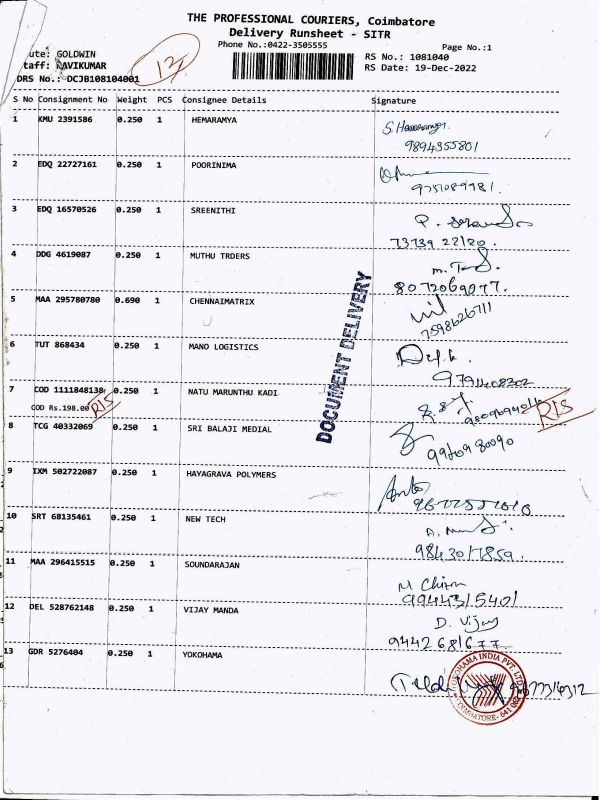 THE PROFESSIONAL COURIERS, Coimbatore
Delivery Runsheet - SITR
Phone No.:0422-3505555
Page No.:1
ute: GOLDWIN
RS No.: 1081040
taff: RAVIKUMAR
RS Date: 19-Dec-2022
DRS No.: DCJB108104001
S No Consignment No Weight PCS Consignee Details Signature
1 KMU 2391586 0.250 1 HEMARAMYA
9894355801
2 EDQ 22727161 0.250 1 POORINIMA
3 EDQ 16570526 0.250 1 SREENITHI
4 DDG 4619087 0.250 1 MUTHU TRDERS
8072069077.
5 MAA 295780780 0.690 1 CHENNAIMATRIX
7598626711
DOCUMENT DELIVERY
6 TUT 868434 0.250 1 MANO LOGISTICS
7 COD 1111848138 0.250 1 NATU MARUNTHU KADI
COD Rs.198.00 RTS
RTS
8 TCG 40332069 0.250 1 SRI BALAJI MEDIAL
9 IXM 502722087 0.250 1 HAYAGRAVA POLYMERS
10 SRT 68135461 0.250 1 NEW TECH
9843017859.
11 MAA 296415515 0.250 1 SOUNDARAJAN
9944315401
12 DEL 528762148 0.250 1 VIJAY MANDA
D. Vijay
9442681677.
13 GDR 5276404 0.250 1 YOKOHAMA
YOKOHAMA INDIA PVT. LTD.
COIMBATORE- 641 062